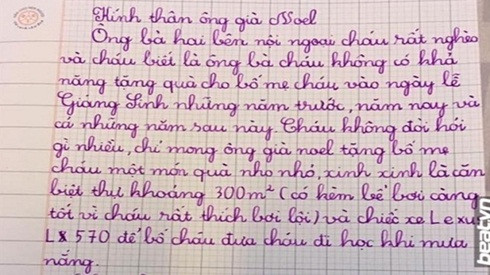 Kính thân ông già Noel
Ông bà hai bên nội ngoại cháu rất nghèo
và cháu biết là ông bà cháu không có khả
năng tặng quà cho bố mẹ cháu vào ngày lễ
Giáng Sinh những năm trước, năm nay và
cả những năm sau này. Cháu không đòi hỏi
gì nhiều, chỉ mong ông già noel tặng bố mẹ
cháu một món quà nho nhỏ, xinh xinh là căn
biệt thự khoảng 300m² (có kèm bể bơi càng
tốt vì cháu rất thích bơi lội) và chiếc xe Lexu
LX 570 để bố cháu đưa cháu đi học khi mưa
nắng.
beatvn